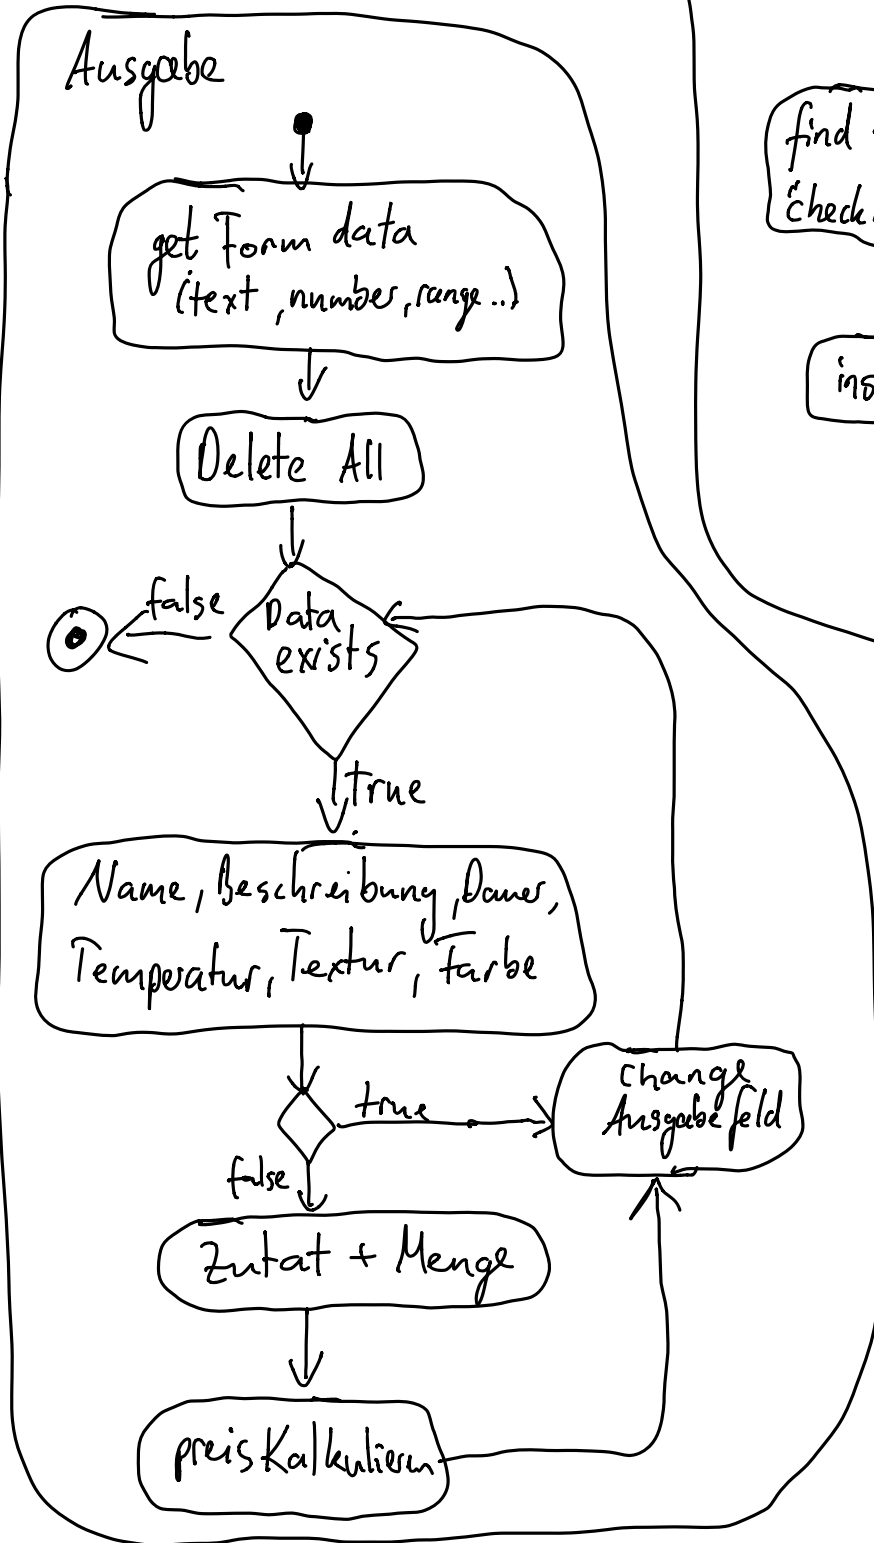 Ausgabe
get Form data
(text, number, range..)
Delete All
false
Data
exists
true
Name, Beschreibung, Dauer,
Temperatur, Textur, Farbe
true
change
Ausgabefeld
false
Zutat + Menge
preisKalkulieren
find
check
ins